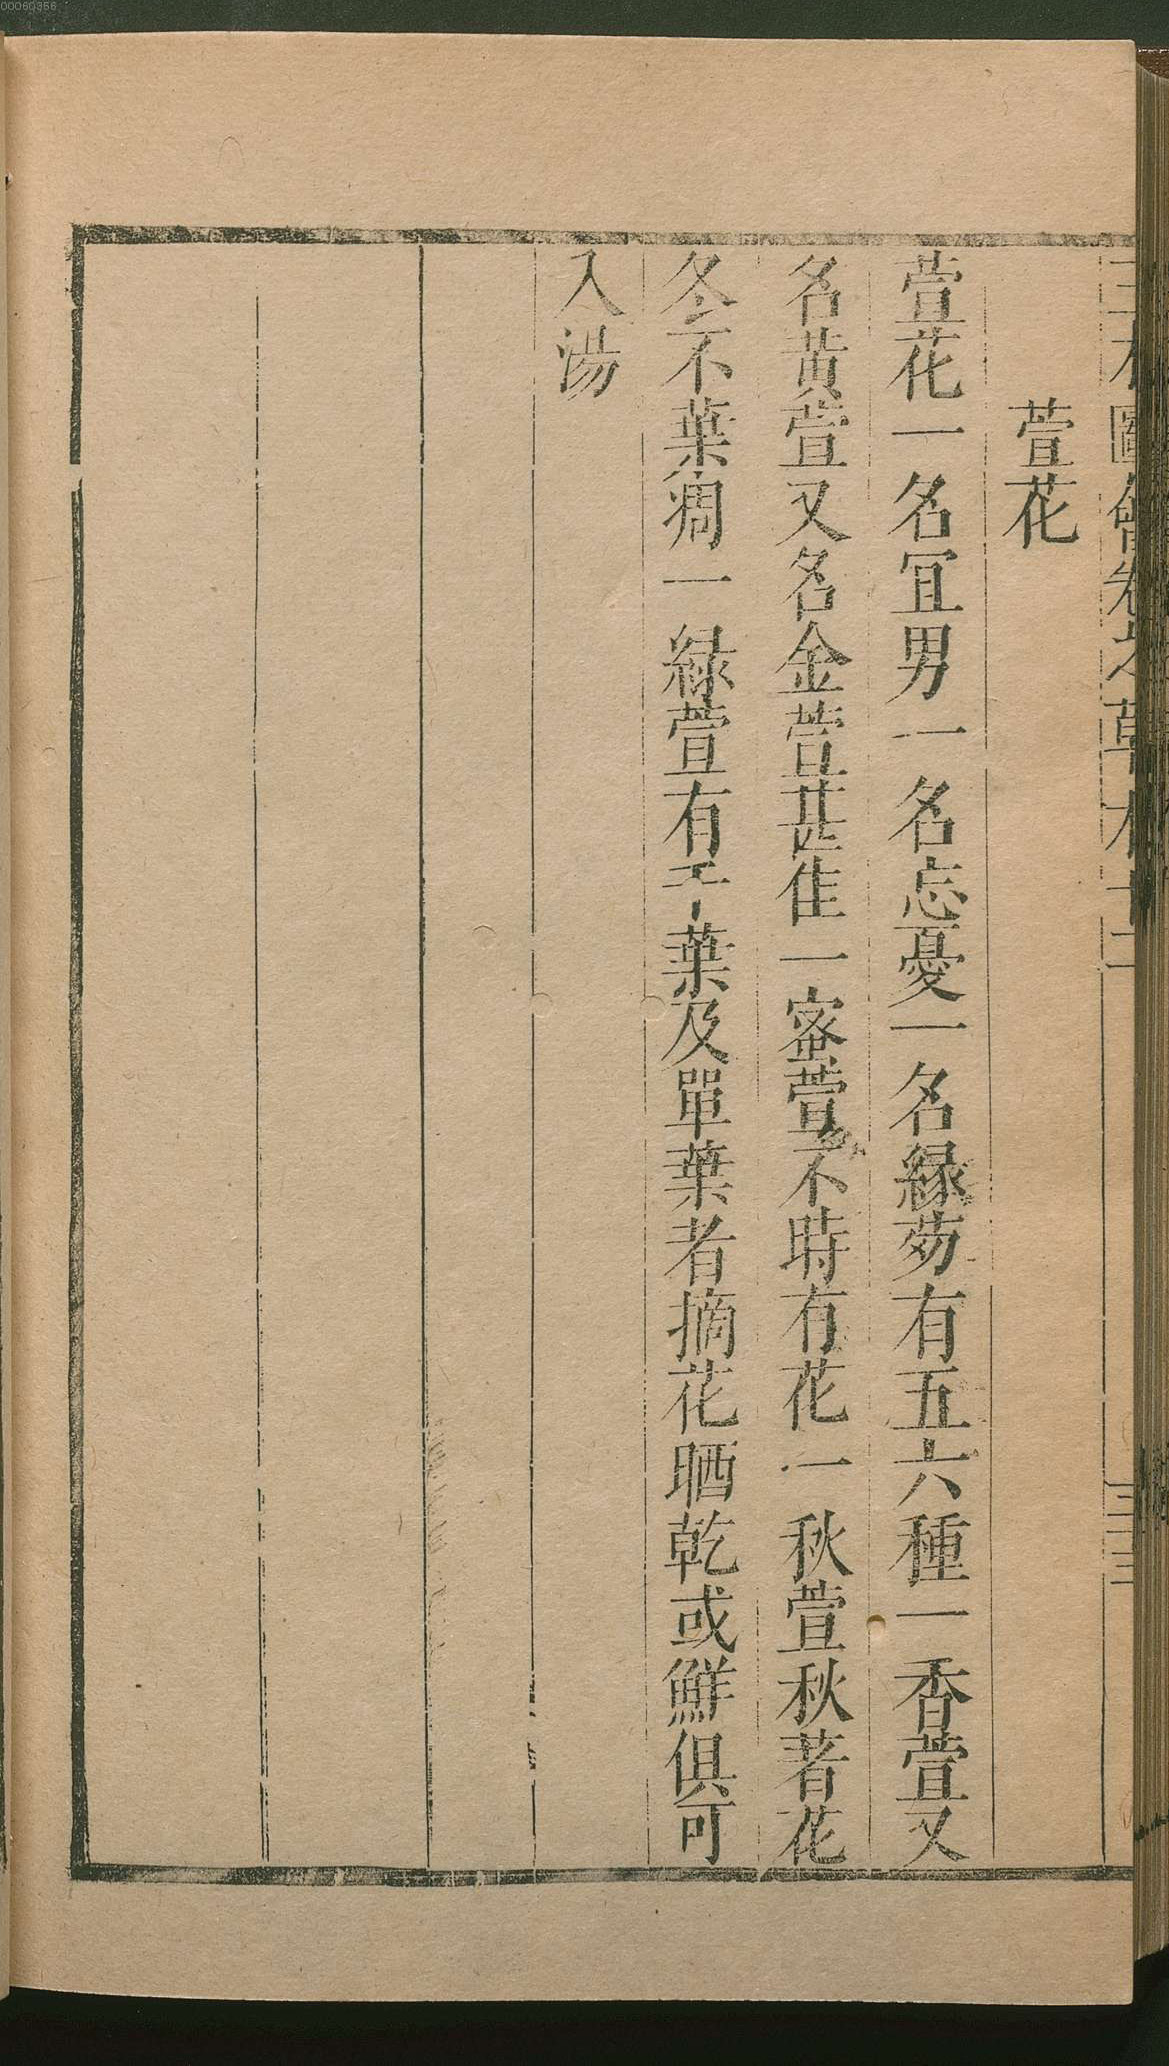 00060356
三才圖會卷之草木十二
三三
萱花
萱花一名宜男一名忘憂一名緑葱有五六種一香萱又
名黄萱又名金萱甚佳一蜜萱不時有花一秋萱秋著花
冬不葉凋一緑萱有千葉及單葉者摘花晒乾或鮮俱可
入湯